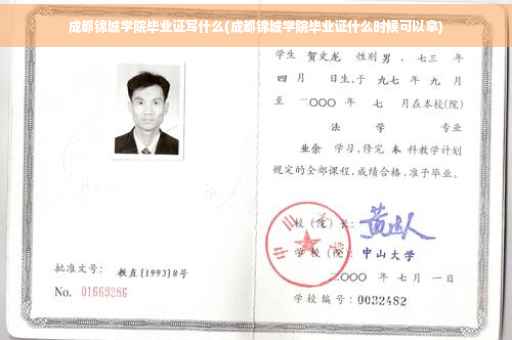 成都锦城学院毕业证写什么(成都锦城学院毕业证什么时候可以拿)
学生 贺文龙 性别 男 、七三 年
四 月 日生,于 九七 年 九 月
至 二〇〇〇 年 七 月在本校(院)
法 学 专业
业余 学习,修完 本 科教学计划
规定的全部课程,成绩合格,准予毕业。
校(院)长:
学校(院) 中山大学
二〇〇〇 年 七月 一日
批准文号: 教直[1993]8号
No. 01669286
学校编号: 0032482